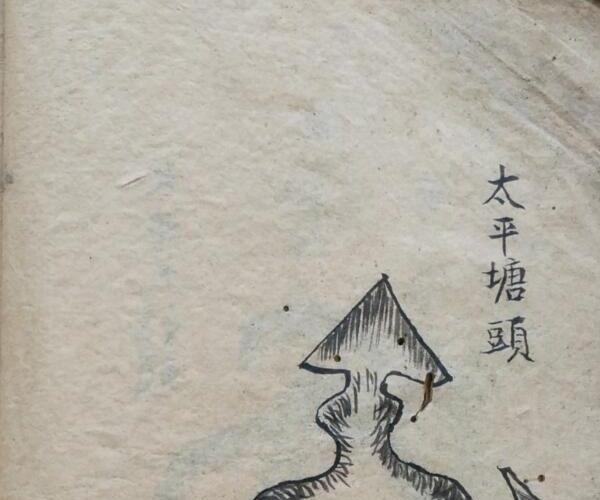 太平塘頭